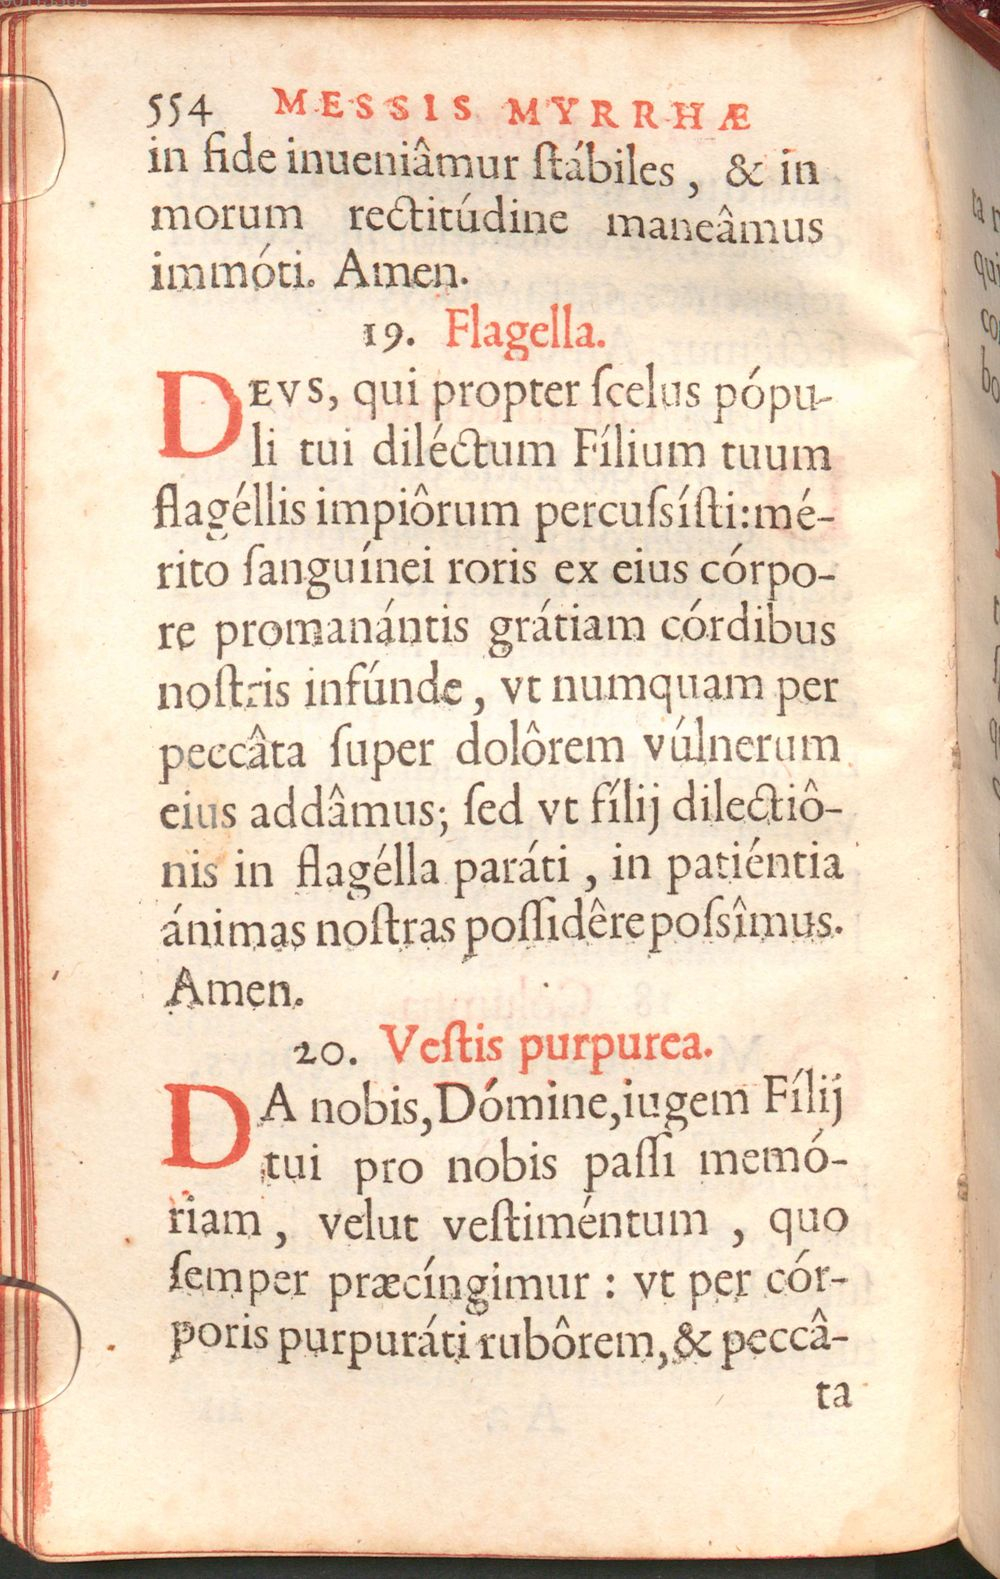 554 MESSIS MYRRHÆ
in fide inueniâmur ſtábiles, & in
morum rectitúdine maneâmus
immóti. Amen.
19. Flagella.
DEVS, qui propter ſcelus pópu-
li tui diléctum Fílium tuum
flagéllis impiôrum percuſsíſti: mé-
rito ſanguínei roris ex eius córpo-
re promanántis grátiam córdibus
noſtris infúnde, vt numquam per
peccâta ſuper dolôrem vúlnerum
eius addâmus; ſed vt fílij dilectiô-
nis in flagélla paráti, in patiéntia
ánimas noſtras poſſidêre poſsîmus.
Amen.
20. Veſtis purpurea.
DA nobis, Dómine, iugem Fílij
tui pro nobis paſſi memó-
riam, velut veſtiméntum, quo
ſemper præcíngimur: vt per cór-
poris purpuráti rubôrem, & peccâ-
ta